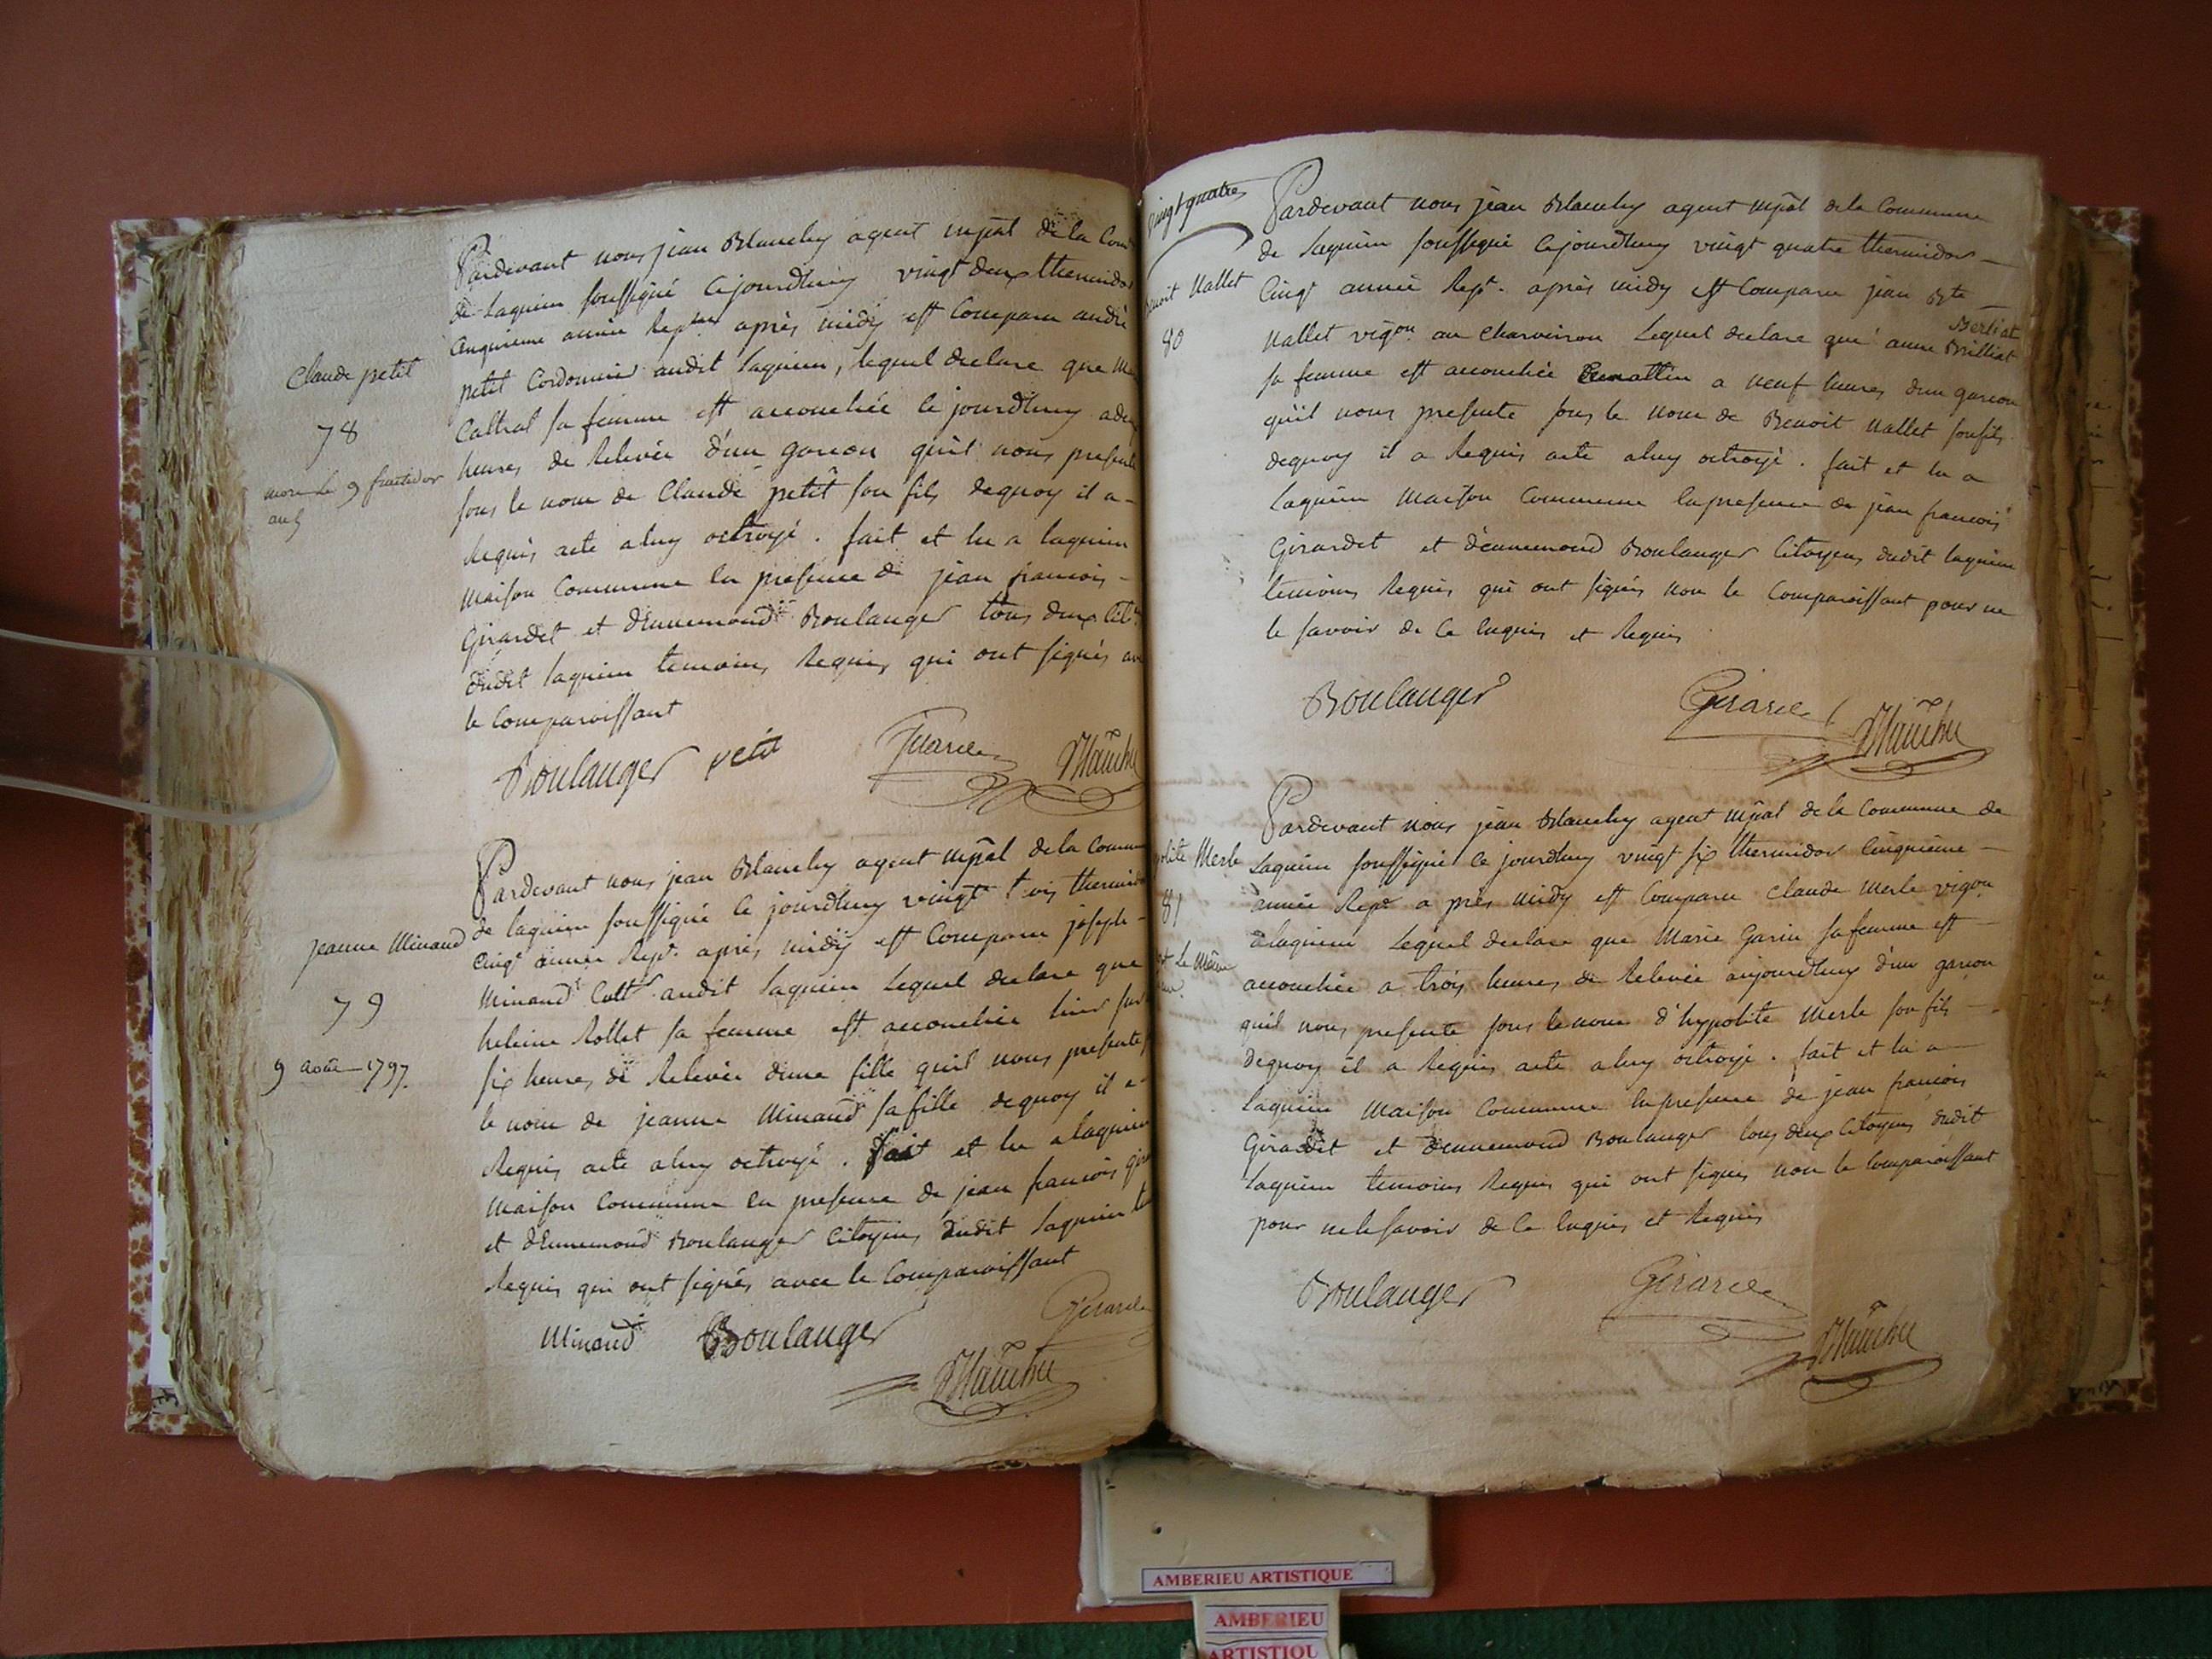 Claude petit
78
mort le 9 fructidor
an 5
Pardevant nous jean Blanchy agent mpāl de la Com
de Lagnieu soussigné cejourdhuy vingt deux thermidor
cinquieme année après midy est Comparu andré
petit Cordonnier audit Lagnieu, lequel declare que
sa femme est accouchée cejourdhuy a deux
heures de Relevée d'un garcon quil nous presente
sous le nom de Claude petit son fils dequoy il a
Requis acte aluy octroyé. fait et lu a lagnieu
maison Commune en presence de jean francois
Girardet et d'Ennemond Boulanger tous deux
dudit lagnieu temoins Requis qui ont signés
le Comparoissant
Boulanger petit
jeanne Minaud
79
9 août 1797
Pardevant nous jean Blanchy agent mpāl de la Commu
de lagnieu soussigné cejourdhuy vingt trois thermid
Cinqe année après midy est Comparu joseph
Minaud audit Lagnieu Lequel declare que
heleine Rollet sa femme est accouchée hier
six heures de Relevée dune fille quil nous presente
le nom de jeanne Minaud sa fille dequoy il a
Requis acte aluy octroyé. fait et lu alagnieu
maison Commune en presence de jean francois
et d'Ennemond Boulanger Citoyens dudit Lagnieu
Requis qui ont signés avec le Comparoissant
Minaud Boulanger
Vingt quatre
Benoit Nallet
80
Pardevant nous jean Blanchy agent mpāl dela Commune
de Lagnieu soussigné cejourdhuy vingt quatre thermidor
Cinqe année après midy est Comparu jean Bte
Nallet vigon. au Charveiron Lequel declare que anne Brilliat
Berliat
sa femme est accouchée a neuf heures dun garcon
quil nous presente sous le nom de Benoit Nallet sonfils
dequoy il a Requis acte aluy octroyé. fait et lu a
Lagnieu maison Commune enpresence de jean francois
Girardet et d'ennemond Boulanger Citoyens dudit lagnieu
temoins Requis qui ont signés non le Comparoissant pour ne
le savoir de ce Enquis et Requis
Boulanger
Merle
81
Le même
Pardevant nous jean Blanchy agent mpāl de la Commune de
Lagnieu soussigné ce jourdhuy vingt six thermidor Cinquieme
année après midy est Comparu Claude Merle vigon
alagnieu Lequel declare que Marie Garin sa femme est
accouchée a trois heures de Relevée aujourdhuy d'un garcon
quil nous presente sous le nom d'hypolite Merle son fils
dequoy il a Requis acte aluy octroyé. fait et lu a
Lagnieu Maison Commune enpresence de jean francois
Girardet et d'ennemond Boulanger tous deux Citoyens dudit
Lagnieu temoins Requis qui ont signés non le Comparoissant
pour nelesavoir de ce Enquis et Requis
Boulanger
AMBERIEU ARTISTIQUE
AMBERIEU